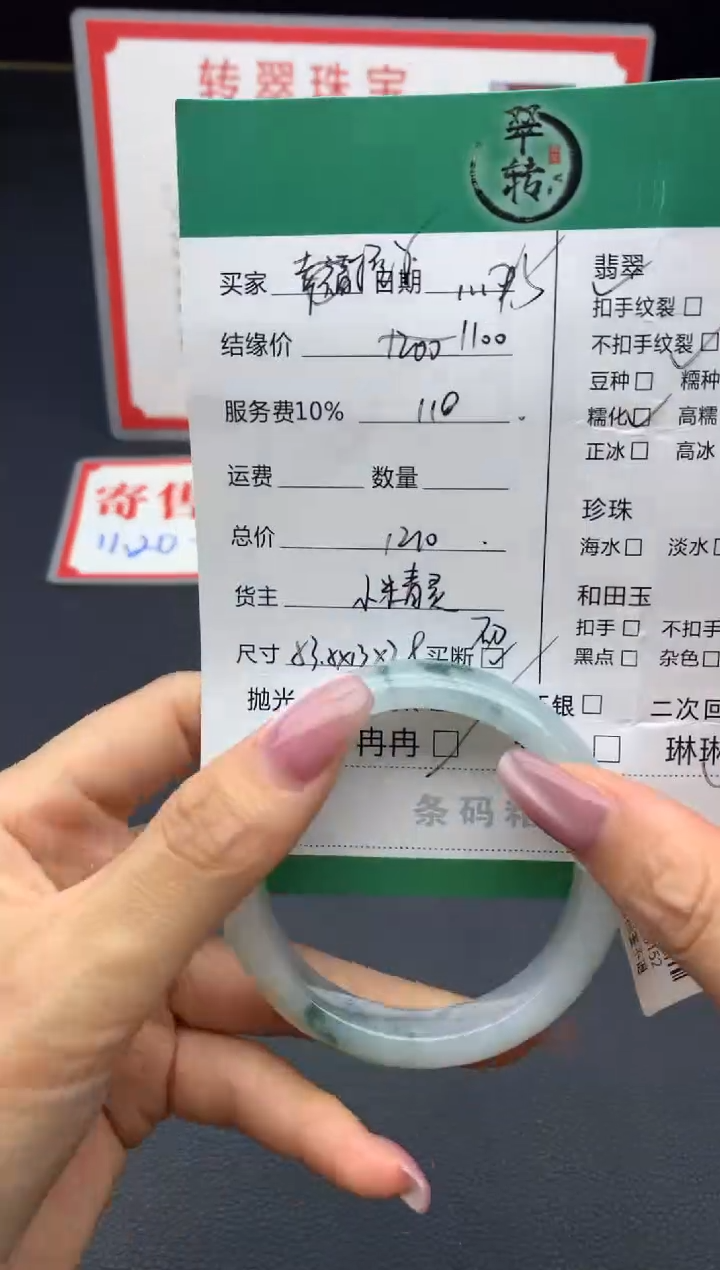 转翠珠宝
翠
转
买家 日期
结缘价 1200 1100
服务费10% 110
运费 数量
总价 1210
货主 小朱青灵
尺寸 买断
抛光
银
冉冉
条码
翡翠
扣手纹裂
不扣手纹裂
豆种 糯种
糯化 高糯
正冰 高冰
珍珠
海水 淡水
和田玉
扣手 不扣手
黑点 杂色
二次回
琳琳
寄售
11.20